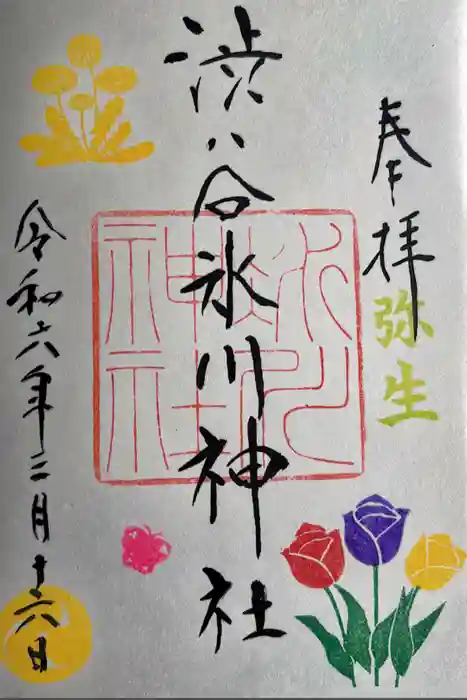 奉拝
弥生
渋谷氷川神社
氷川
神社
令和六年三月十六日